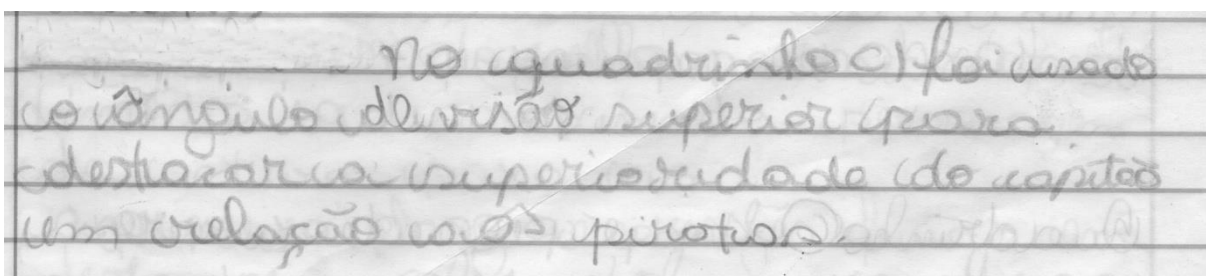 No quadrinho c) foi usado
o ângulo de visão superior para
destacar a superioridade do capitão
em relação a os piratas.